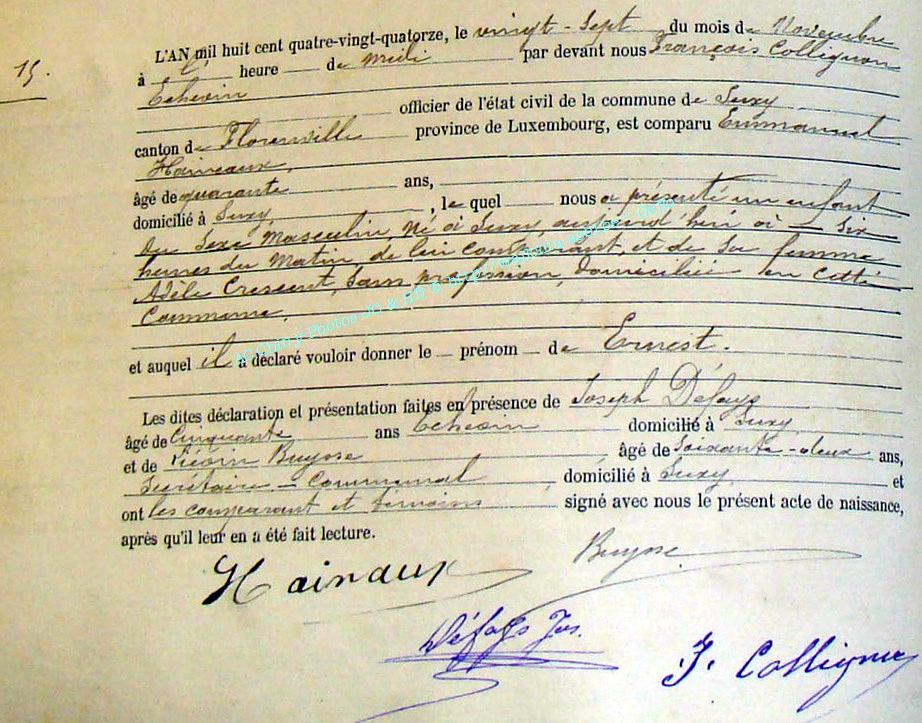 15.
L'AN mil huit cent quatre-vingt-quatorze, le vingt-sept du mois de Novembre
à l' heure de midi par devant nous François Collignon
Echevin
officier de l'état civil de la commune de Suxy
canton de Florenville province de Luxembourg, est comparu Emmanuel
Hainaux,
âgé de quarante ans,
domicilié à Suxy, , le quel nous a présenté un enfant
du sexe Masculin, Né à Suxy, aujourd'hui à six
heures du Matin, de lui comparant, et de sa femme
Adèle Crescent, sans profession, domiciliée en cette
Commune,
et auquel il a déclaré vouloir donner le prénom de Ernest.
Les dites déclaration et présentation faites en présence de Joseph Défays
âgé de Cinquante ans Echevin domicilié à Suxy
et de Buysse âgé de Soixante-deux ans,
Secrétaire-Communal, domicilié à Suxy, et
ont les comparant et témoins signé avec nous le présent acte de naissance,
après qu'il leur en a été fait lecture.
Hainaux Buysse
Défays Jos.
F. Collignon